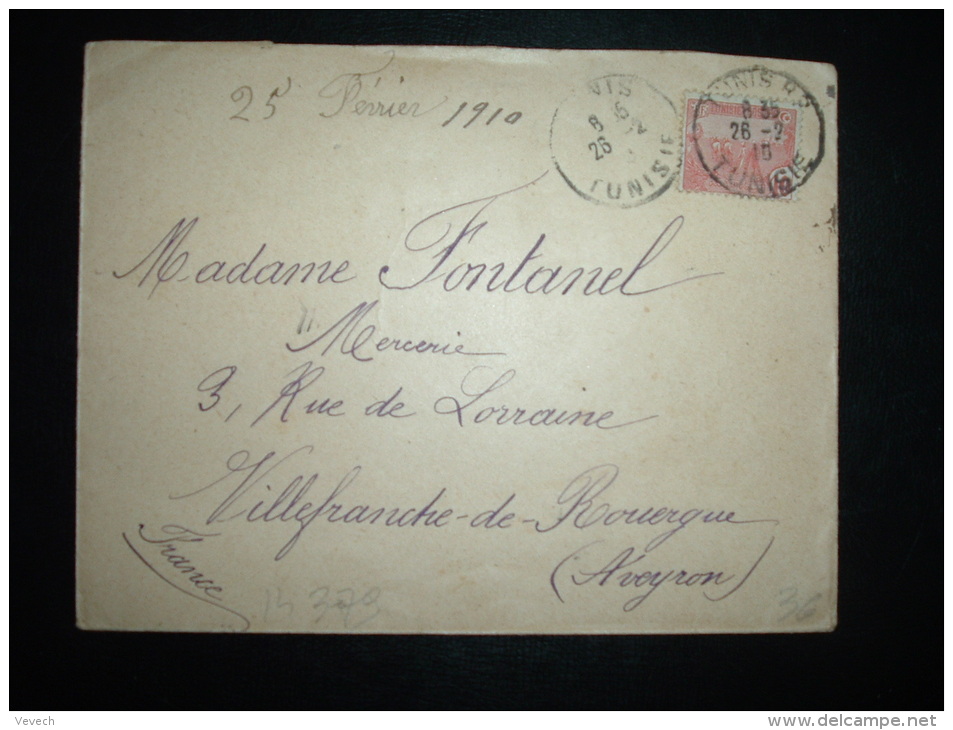 25 Février 1910
NIS
8
26
TUNISIE
TUNIS R.P
8 35
26 -2
10
TUNISIE
Madame Fontanel
Mercerie
3, Rue de Lorraine
Villefranche-de-Rouergue
(Aveyron)
France
36
Vevech
www.delcampe.net